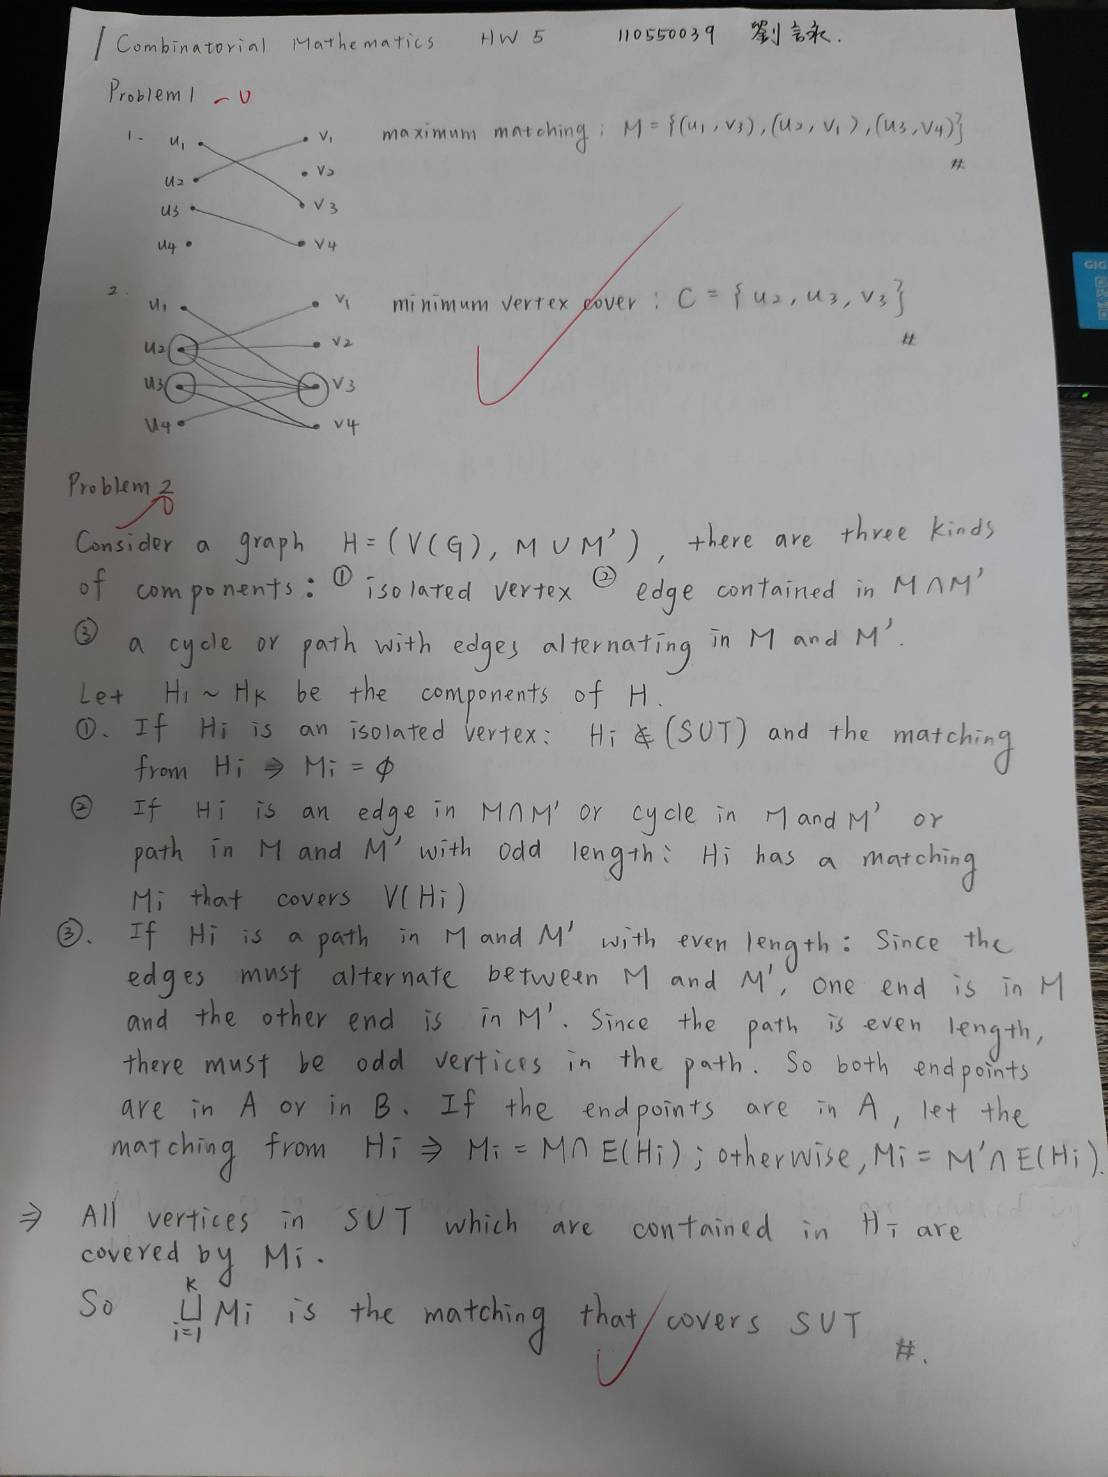 Combinatorial Mathematics HW 5 110550039 劉詠
Problem 1
1. u1 v1 maximum matching : M = {(u1, v3), (u2, v1), (u3, v4)}
u2 v2 #
u3 v3
u4 v4
2. u1 v1 minimum vertex cover : C = {u2, u3, v3}
u2 v2 #
u3 v3
u4 v4
GIG
Problem 2
Consider a graph H = (V(G), M ∪ M'), there are three kinds
of components : ① isolated vertex ② edge contained in M∩M'
③ a cycle or path with edges alternating in M and M'.
Let H1 ~ Hk be the components of H.
①. If Hi is an isolated vertex : Hi ∉ (S∪T) and the matching
from Hi ⇒ Mi = ϕ
② If Hi is an edge in M∩M' or cycle in M and M' or
path in M and M' with odd length : Hi has a matching
Mi that covers V(Hi)
③. If Hi is a path in M and M' with even length : Since the
edges must alternate between M and M', one end is in M
and the other end is in M'. Since the path is even length,
there must be odd vertices in the path. So both endpoints
are in A or in B. If the endpoints are in A, let the
matching from Hi ⇒ Mi = M∩E(Hi) ; otherwise, Mi = M'∩E(Hi).
⇒ All vertices in S∪T which are contained in Hi are
covered by Mi.
So ⋃ i=1 k Mi is the matching that covers S∪T #.